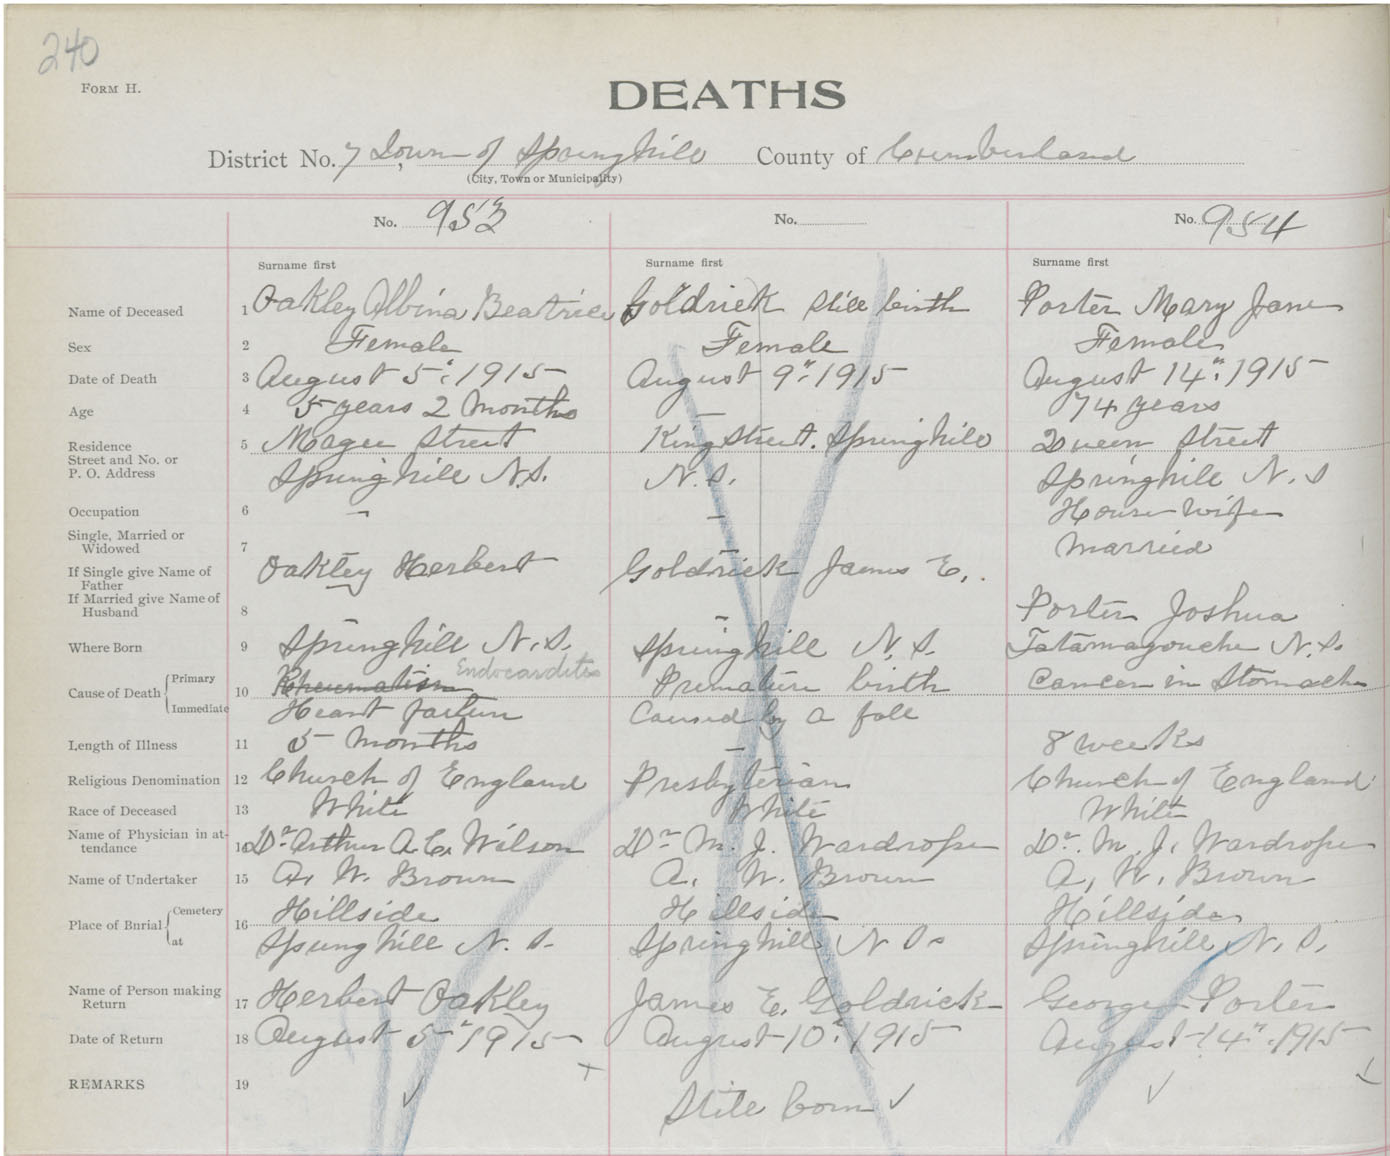 240
FORM H.
DEATHS
District No. 7 Town of Springhill County of Cumberland
(City, Town or Municipality)
No. 953 No. No. 954
Surname first Surname first Surname first
Name of Deceased 1 Oakley Albina Beatrice Goldrick Still birth Porter Mary Jane
Sex 2 Female Female Female
Date of Death 3 August 5", 1915 August 9", 1915 August 14", 1915
Age 4 5 years 2 Months – 74 years
Residence 5 Magee Street King Street. Springhill Queen Street
Street and No. or
P. O. Address Springhill N.S. N.S. Springhill N.S
Occupation 6 – – House wife
Single, Married or
Widowed 7 – – Married
If Single give Name of
Father Oakley Herbert Goldrick James E.
If Married give Name of
Husband 8 – – Porter Joshua
Where Born 9 Springhill N.S. Springhill N.S. Tatamagouche N.S.
Cause of Death { Primary 10 Rheumatism Endocarditis Premature birth Cancer in Stomach
Immediate Heart failure Caused by a fall
Length of Illness 11 5 Months – 8 weeks
Religious Denomination 12 Church of England Presbyterian Church of England
Race of Deceased 13 White White White
Name of Physician in at-
tendance 14 Dr Arthur A.C. Wilson Dr M. J. Wardrope Dr. M. J. Wardrope
Name of Undertaker 15 A. W. Brown A. W. Brown A. W. Brown
Place of Burial { Cemetery 16 Hillside Hillside Hillside
at Springhill N.S. Springhill N S. Springhill N.S.
Name of Person making
Return 17 Herbert Oakley James E. Goldrick George Porter
Date of Return 18 August 5" 1915 August 10", 1915 August 14", 1915
REMARKS 19 Still born